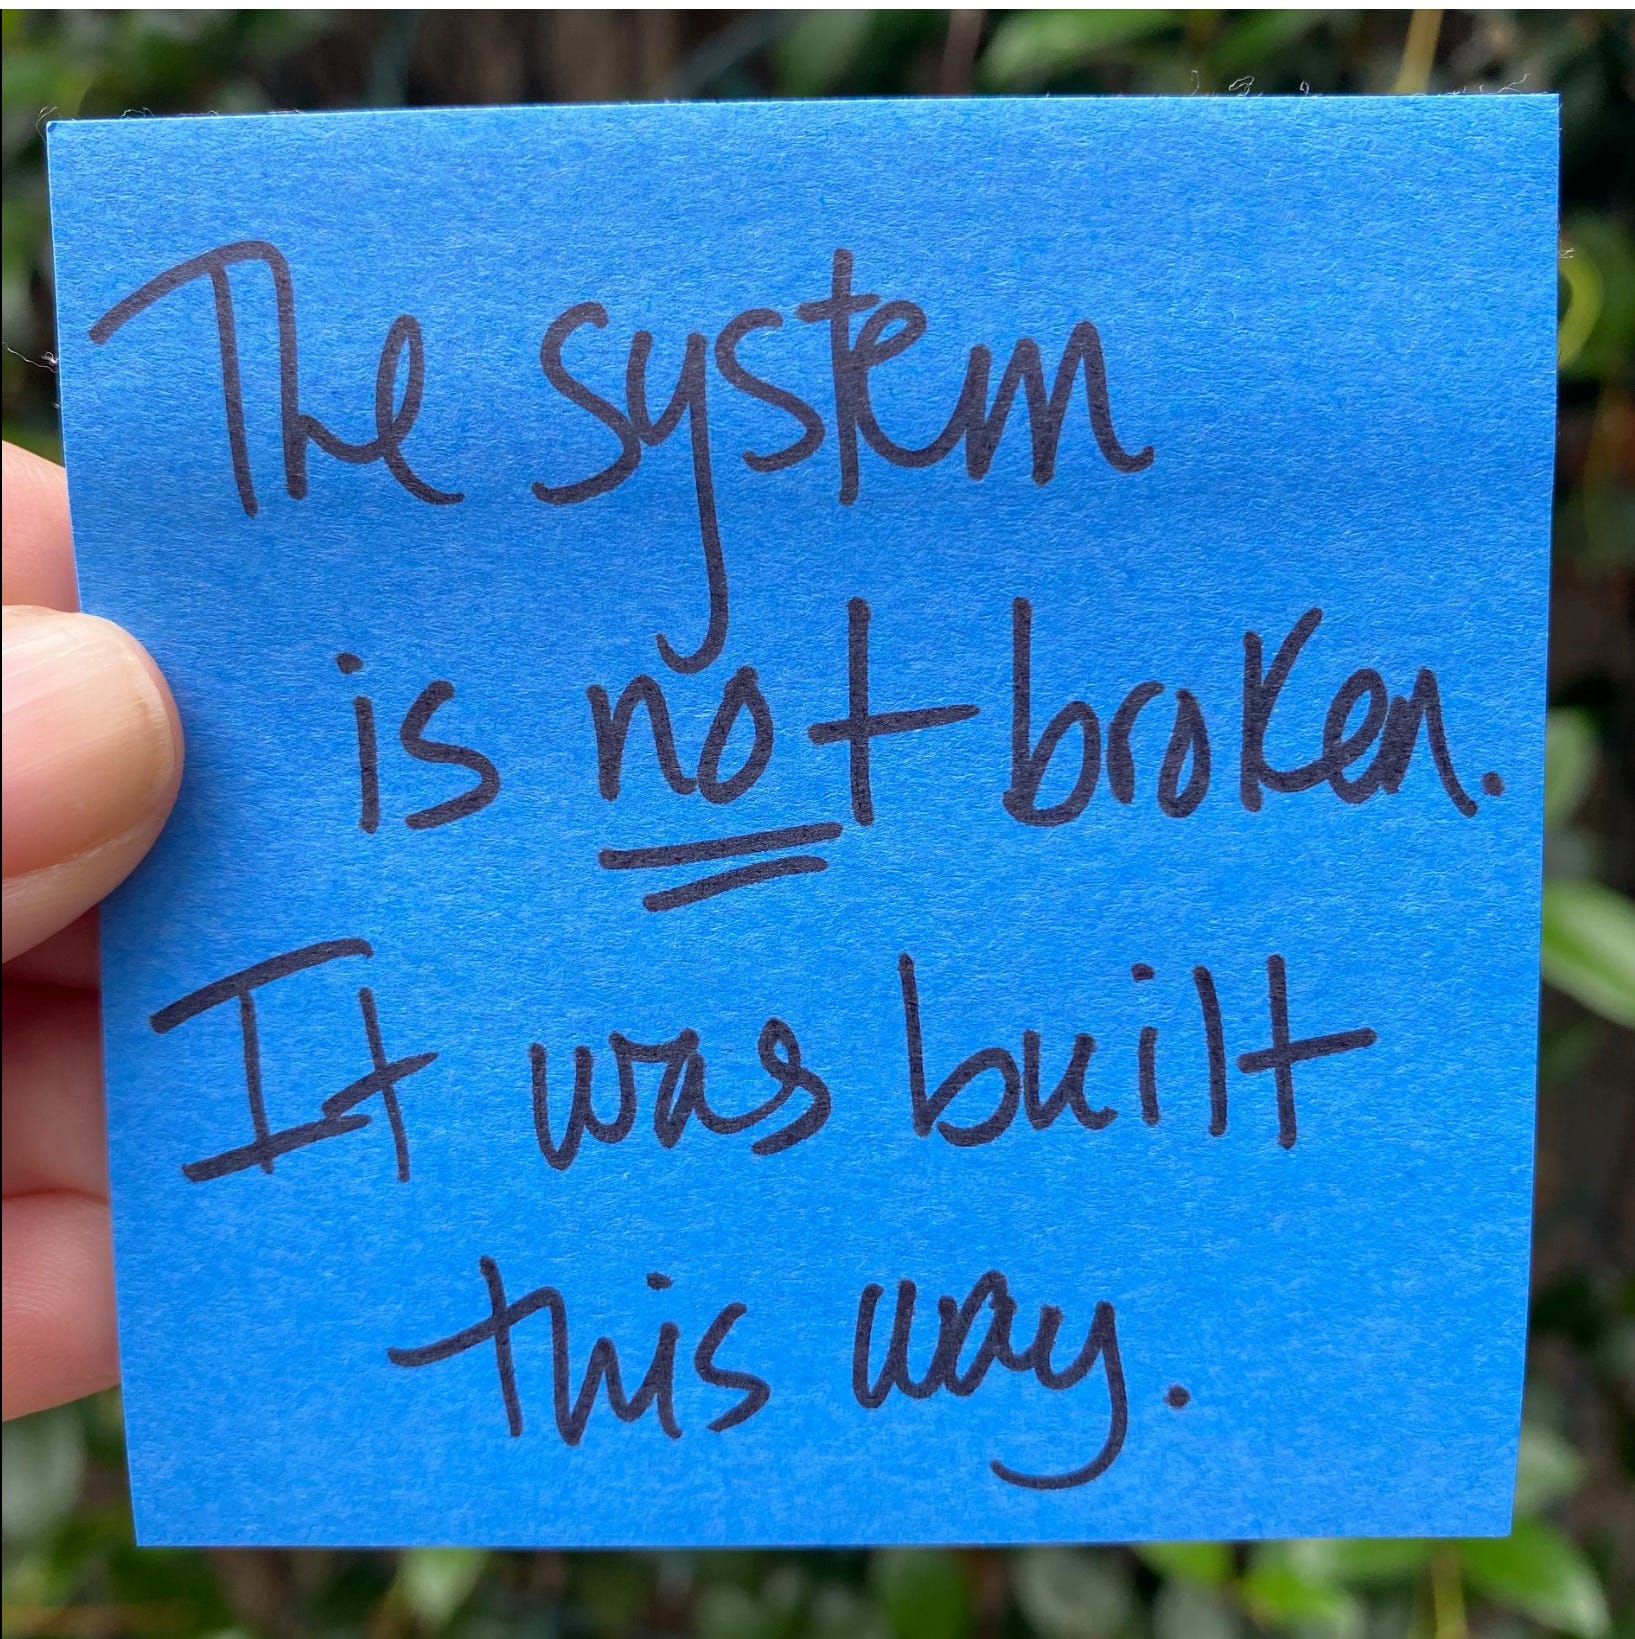 The system
is not broken.
It was built
this way.